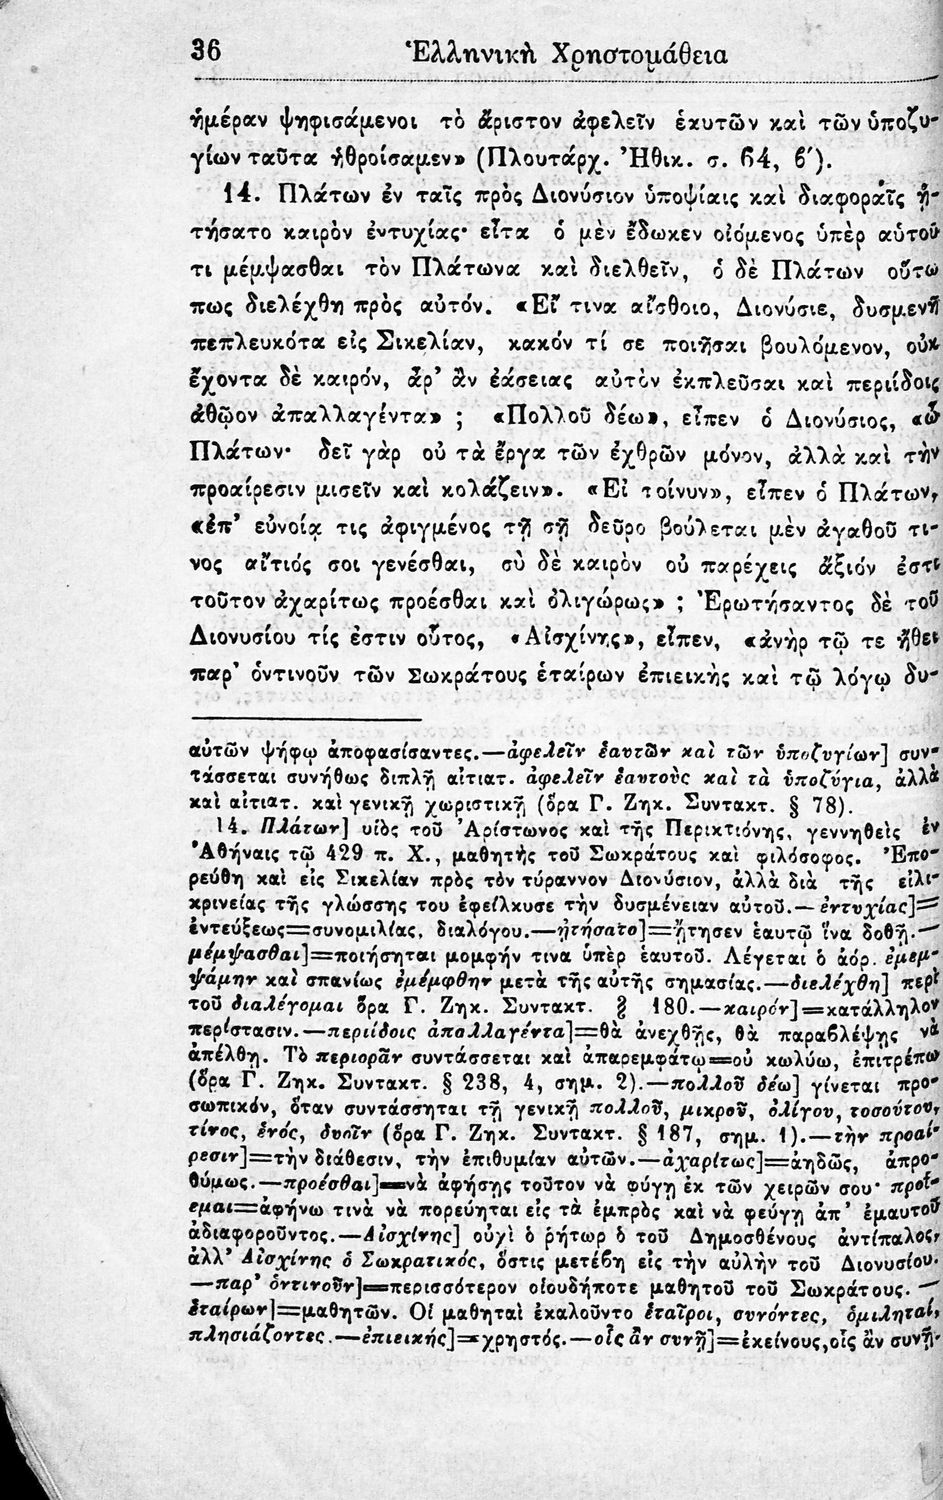 36 Ἑλληνικὴ Χρηστομάθεια
ἡμέραν ψηφισάμενοι τὸ ἄριστον ἀφελεῖν ἑαυτῶν καὶ τῶν ὑποζυ-
γίων ταῦτα ἠθροίσαμεν» (Πλουτάρχ. Ἠθικ. σ. 64, 6΄).
14. Πλάτων ἐν ταῖς πρὸς Διονύσιον ὑποψίαις καὶ διαφοραῖς ᾐ-
τήσατο καιρὸν ἐντυχίας· εἶτα ὁ μὲν ἔδωκεν οἰόμενος ὑπὲρ αὑτοῦ
τι μέμψασθαι τὸν Πλάτωνα καὶ διελθεῖν, ὁ δὲ Πλάτων οὕτω
πως διελέχθη πρὸς αὐτόν. «Εἴ τινα αἴσθοιο, Διονύσιε, δυσμενῆ
πεπλευκότα εἰς Σικελίαν, κακόν τί σε ποιῆσαι βουλόμενον, οὐκ
ἔχοντα δὲ καιρόν, ἆρ’ ἂν ἐάσειας αὐτὸν ἐκπλεῦσαι καὶ περιίδοις
ἀθῷον ἀπαλλαγέντα» ; «Πολλοῦ δέω», εἶπεν ὁ Διονύσιος, «ὦ
Πλάτων· δεῖ γὰρ οὐ τὰ ἔργα τῶν ἐχθρῶν μόνον, ἀλλὰ καὶ τὴν
προαίρεσιν μισεῖν καὶ κολάζειν». «Εἰ τοίνυν», εἶπεν ὁ Πλάτων,
«ἐπ’ εὐνοίᾳ τις ἀφιγμένος τῇ σῇ δεῦρο βούλεται μὲν ἀγαθοῦ τι-
νος αἴτιός σοι γενέσθαι, σὺ δὲ καιρὸν οὐ παρέχεις ἄξιόν ἐστι
τοῦτον ἀχαρίτως προέσθαι καὶ ὀλιγώρως» ; Ἐρωτήσαντος δὲ τοῦ
Διονυσίου τίς ἐστιν οὗτος, «Αἰσχίνης», εἶπεν, «ἀνὴρ τῷ τε ἤθει
παρ’ ὁντινοῦν τῶν Σωκράτους ἑταίρων ἐπιεικὴς καὶ τῷ λόγῳ δυ-
αὐτῶν ψήφῳ ἀποφασίσαντες.—ἀφελεῖν ἑαυτῶν καὶ τῶν ὑποζυγίων] συν-
τάσσεται συνήθως διπλῇ αἰτιατ. ἀφελεῖν ἑαυτοὺς καὶ τὰ ὑποζύγια, ἀλλὰ
καὶ αἰτιατ. καὶ γενικῇ χωριστικῇ (ὅρα Γ. Ζηκ. Συντακτ. § 78).
14. Πλάτων] υἱὸς τοῦ Ἀρίστωνος καὶ τῆς Περικτιόνης, γεννηθεὶς ἐν
Ἀθήναις τῷ 429 π. Χ., μαθητὴς τοῦ Σωκράτους καὶ φιλόσοφος. Ἐπο-
ρεύθη καὶ εἰς Σικελίαν πρὸς τὸν τύραννον Διονύσιον, ἀλλὰ διὰ τῆς εἰλι-
κρινείας τῆς γλώσσης του ἐφείλκυσε τὴν δυσμένειαν αὐτοῦ.—ἐντυχίας]=
ἐντεύξεως=συνομιλίας, διαλόγου.—ᾐτήσατο]=ᾔτησεν ἑαυτῷ ἵνα δοθῇ.—
μέμψασθαι]=ποιήσηται μομφήν τινα ὑπὲρ ἑαυτοῦ. Λέγεται ὁ ἀόρ. ἐμεμ-
ψάμην καὶ σπανίως ἐμέμφθην μετὰ τῆς αὐτῆς σημασίας.—διελέχθη] περὶ
τοῦ διαλέγομαι ὅρα Γ. Ζηκ. Συντακτ. § 180.—καιρόν]=κατάλληλον
περίστασιν.—περιίδοις ἀπαλλαγέντα]=θὰ ἀνεχθῇς, θὰ παραβλέψῃς νὰ
ἀπέλθῃ. Τὸ περιορᾶν συντάσσεται καὶ ἀπαρεμφάτῳ=οὐ κωλύω, ἐπιτρέπω
(ὅρα Γ. Ζηκ. Συντακτ. § 238, 4, σημ. 2).—πολλοῦ δέω] γίνεται προ-
σωπικόν, ὅταν συντάσσηται τῇ γενικῇ πολλοῦ, μικροῦ, ὀλίγου, τοσούτου,
τίνος, ἑνός, δυοῖν (ὅρα Γ. Ζηκ. Συντακτ. § 187, σημ. 1).—τὴν προαί-
ρεσιν]=τὴν διάθεσιν, τὴν ἐπιθυμίαν αὐτῶν.—ἀχαρίτως]=ἀηδῶς, ἀπρο-
θύμως.—προέσθαι]=νὰ ἀφήσῃς τοῦτον νὰ φύγῃ ἐκ τῶν χειρῶν σου· προΐ-
εμαι=ἀφήνω τινὰ νὰ πορεύηται εἰς τὰ ἐμπρὸς καὶ νὰ φεύγῃ ἀπ’ ἐμαυτοῦ
ἀδιαφοροῦντος.—Αἰσχίνης] οὐχὶ ὁ ῥήτωρ ὁ τοῦ Δημοσθένους ἀντίπαλος,
ἀλλ’ Αἰσχίνης ὁ Σωκρατικός, ὅστις μετέβη εἰς τὴν αὐλὴν τοῦ Διονυσίου.
—παρ’ ὁντινοῦν]=περισσότερον οἱουδήποτε μαθητοῦ τοῦ Σωκράτους.—
ἑταίρων]=μαθητῶν. Οἱ μαθηταὶ ἐκαλοῦντο ἑταῖροι, συνόντες, ὁμιληταί,
πλησιάζοντες.—ἐπιεικής]=χρηστός.—οἷς ἂν συνῇ]=ἐκείνους,οἷς ἂν συνῇ·